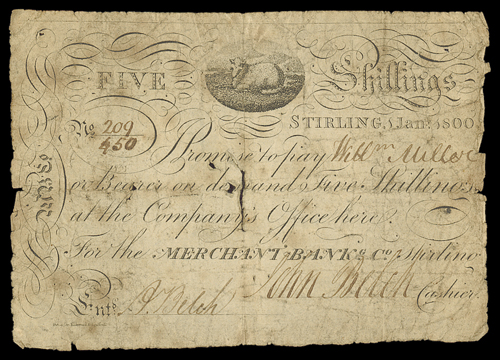 FIVE Shillings
STIRLING, 1 Jany. 1800
No. 209/450 Promise to pay Willm Miller
or Bearer on demand Five Shillings
at the Company's Office here.
For the MERCHANT BANKg. Co. of Stirling
John Belch Cashier
Entd. J. Belch